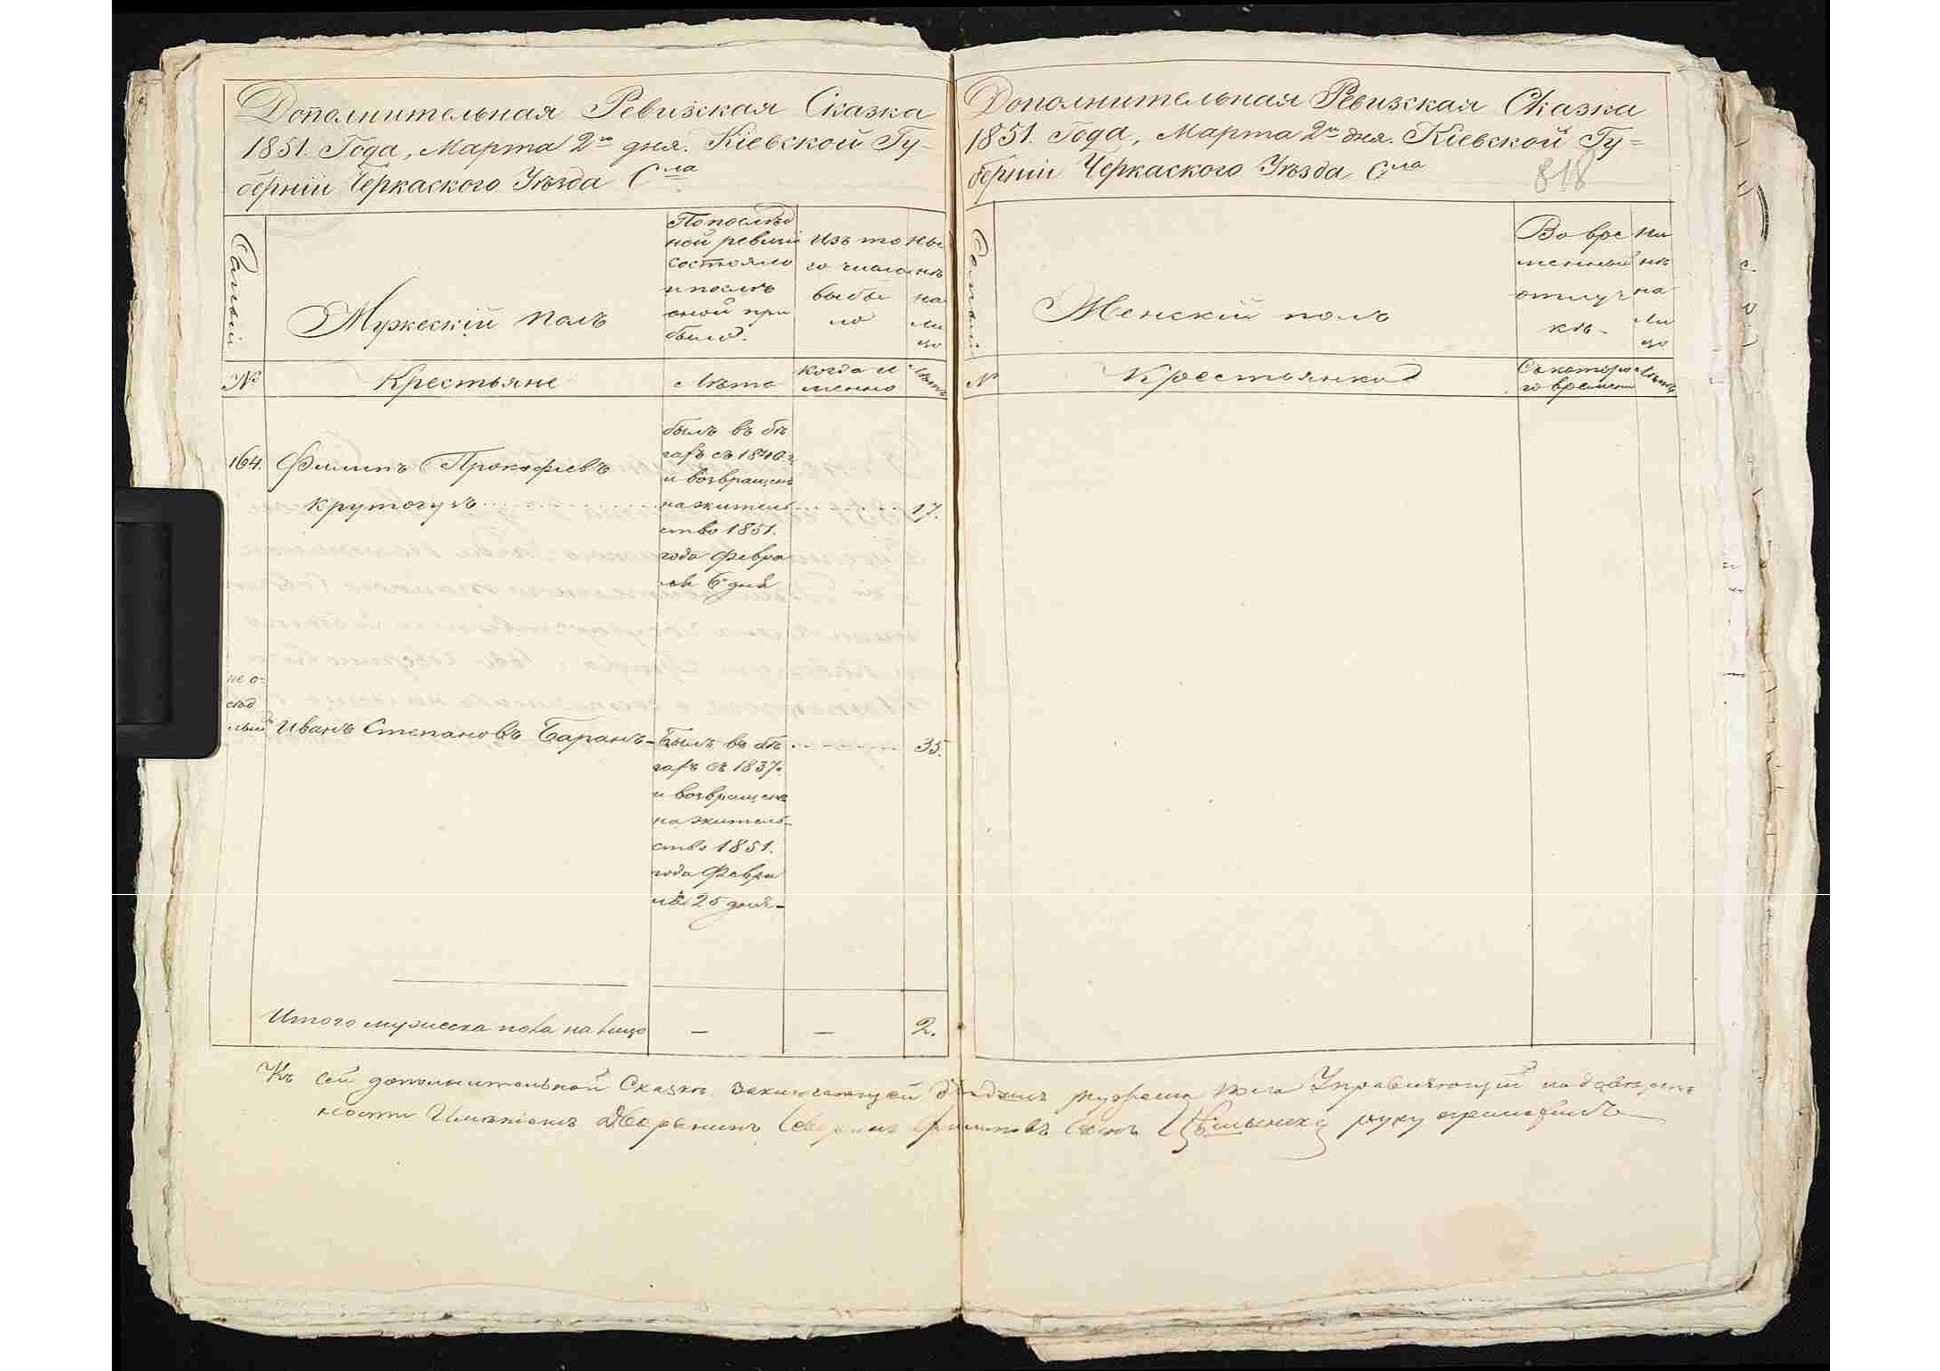 Дополнительная Ревижская Сказка
1851. Года, Марта 2го дня. Кіевской Гу-
берніи Черкаского Уѣзда Сла
Мужескій полъ
Попослѣд
ной ревизіи
состояло
и послѣ
оной при
было.
Изъ то
го числа
выбы
ло
Ны
нѣ
на
ли
цо
№
Крестьяне
Лѣта
когда и
менно
Лѣта
164.
Филипъ Прокофіевъ
крутогузъ
былъ въ бѣ
гахъ съ 1840 г.
и возвращенъ
на житель
ство 1851.
года Февра
ля 6 дня
17.
не о-
сѣд
лый
Иванъ Степановъ Баранъ-
Былъ въ бѣ
гахъ съ 1837.
и возвращенъ
на житель-
ство 1851.
года Февра
ля 25 дня-
35.
Итого мужеска пола на лицо
—
—
2.
Дополнительная Ревижская Сказка
1851. Года, Марта 2го дня. Кіевской Гу=
берніи Черкаского Уѣзда Сла
818
Женскій полъ
Во вре
менной
отлуч
кѣ-
Ны
нѣ
на
ли
цо
№
Крестьянка
Съ которо
го времени
Лѣта
Къ сей дополнительной Сказкѣ Управляющій
Имѣніемъ Дворянинъ Филиповъ Сынъ руку приложилъ